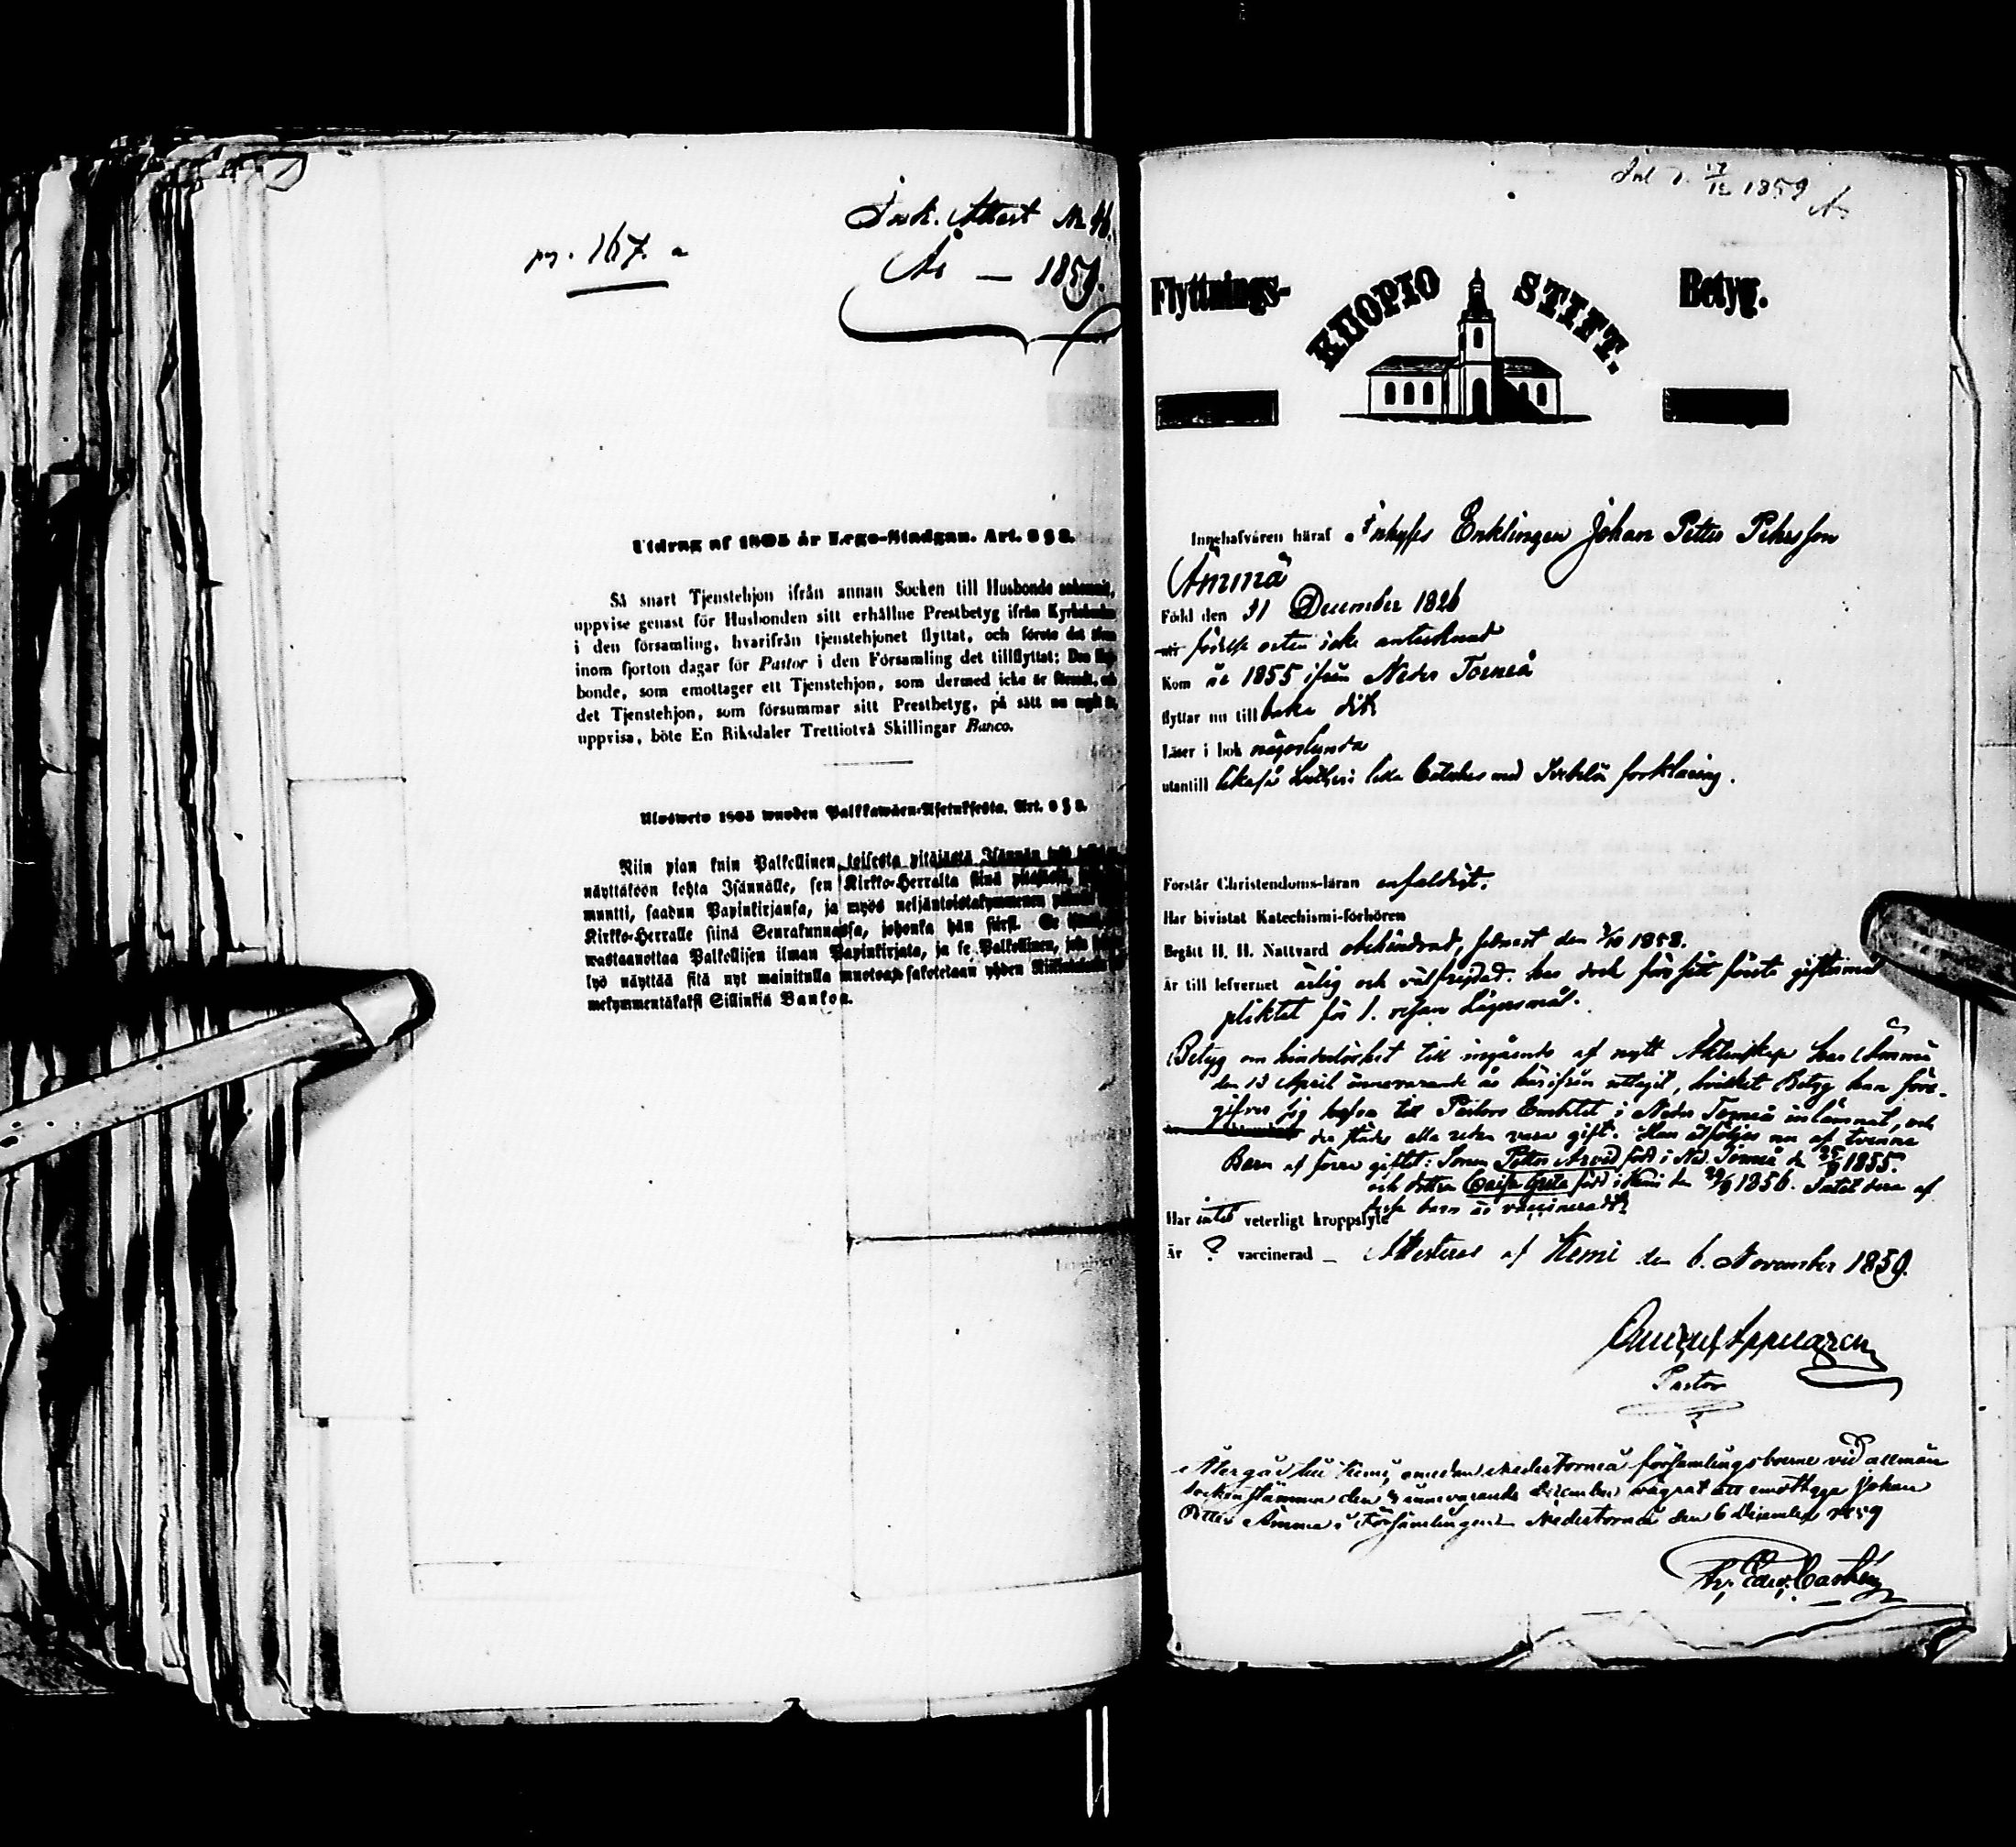 Ink. Attest No 46.
pag. 167. a
År — 1859.
Utdrag af 1805 år Lego-Stadgan. Art. 8 § 3.
Så snart Tjenstehjon ifrån annan Socken till Husbonde ankommit,
uppvise genast för Husbonden sitt erhållne Prestbetyg ifrån
i den församling, hvarifrån tjenstehjonet flyttat, och förete det
inom fjorton dagar för Pastor i den Församling det tillflyttat; Den
bonde, som emottager ett Tjenstehjon, som dermed icke är försedt, och
det Tjenstehjon, som försummar sitt Prestbetyg, på sätt nu sagdt är,
uppvisa, böte En Riksdaler Trettiotvå Skillingar Banco.
Ulosweto 1805 wuoden Palkkawäen-Asetuksesta. Art. 8 § 3.
Niin pian kuin Palkollinen toisesta pitäjästä Isännän
näyttäköön kohta Isännälle, sen Kirkko-Herralta siinä
muutti, saadun Papinkirjansa, ja myös neljäntoistakymmenen
Kirkko-Herralle siinä Seurakunnassa, johonka hän siirsi. Se
wastaanottaa Palkollisen ilman Papinkirjata, ja se Palkollinen, joka
lyö näyttää sitä nyt mainitulla muotoa, sakotetaan yhden
mekymmentäkaksi Sillinkiä Bankoa.
Inl d. 17/12 1859
Flyttnings- KUOPIO STIFT. Betyg.
Innehafvaren häraf Inhyses Enklingen Johan Petter Pehrsson
Ämmä
Född den 31 December 1826
födelse orten icke antecknad
Kom år 1855 ifrån Neder Torneå
flyttar nu till baka dit
Läser i bok någorlunda
utantill likaså Lutheri lilla Catches med Svebilii förklaring.
Förstår Christendoms-läran enfaldigt.
Har bivistat Katechismi-förhören
Begått H. H. Nattvard oehindrad, senast den 3/10 1858.
Är till lefvernet ärlig och välfrejdad. har dock för sitt första giftermål
pliktet för 1. resan Lägersmål.
Betyg om hinderlöshet till ingående af nytt Äktenskap har Ämmä
den 13 April innevarande år härifrån uttagit, hvilket Betyg han före-
gifver sig hafva till Pastors Embetet i Neder Torneå inlämnat, och
der städes alla reden vara gift. Han åtföljes nu af tvenne
Barn af förra giftet: Sonen Petter Arvid född i Ned. Torneå d. 25/9 1855.
och dottren Caisa Greta född i Kemi den 29/9 1856. Intet dera af
dessa barn är vaccineradt
Har intet veterligt kroppslyte
Är ? vaccinerad — Attesteras af Kemi den 6. November 1859.
Pastor
Återgår till Kemi, emedan Nedertorneå församlingsboerne vid allmän
Sockenstämma den 4 innevarande December vägrat att emottaga Johan
Petter Ämmä i Församlingen. Nedertorneå den 6 December 1859
Castrén